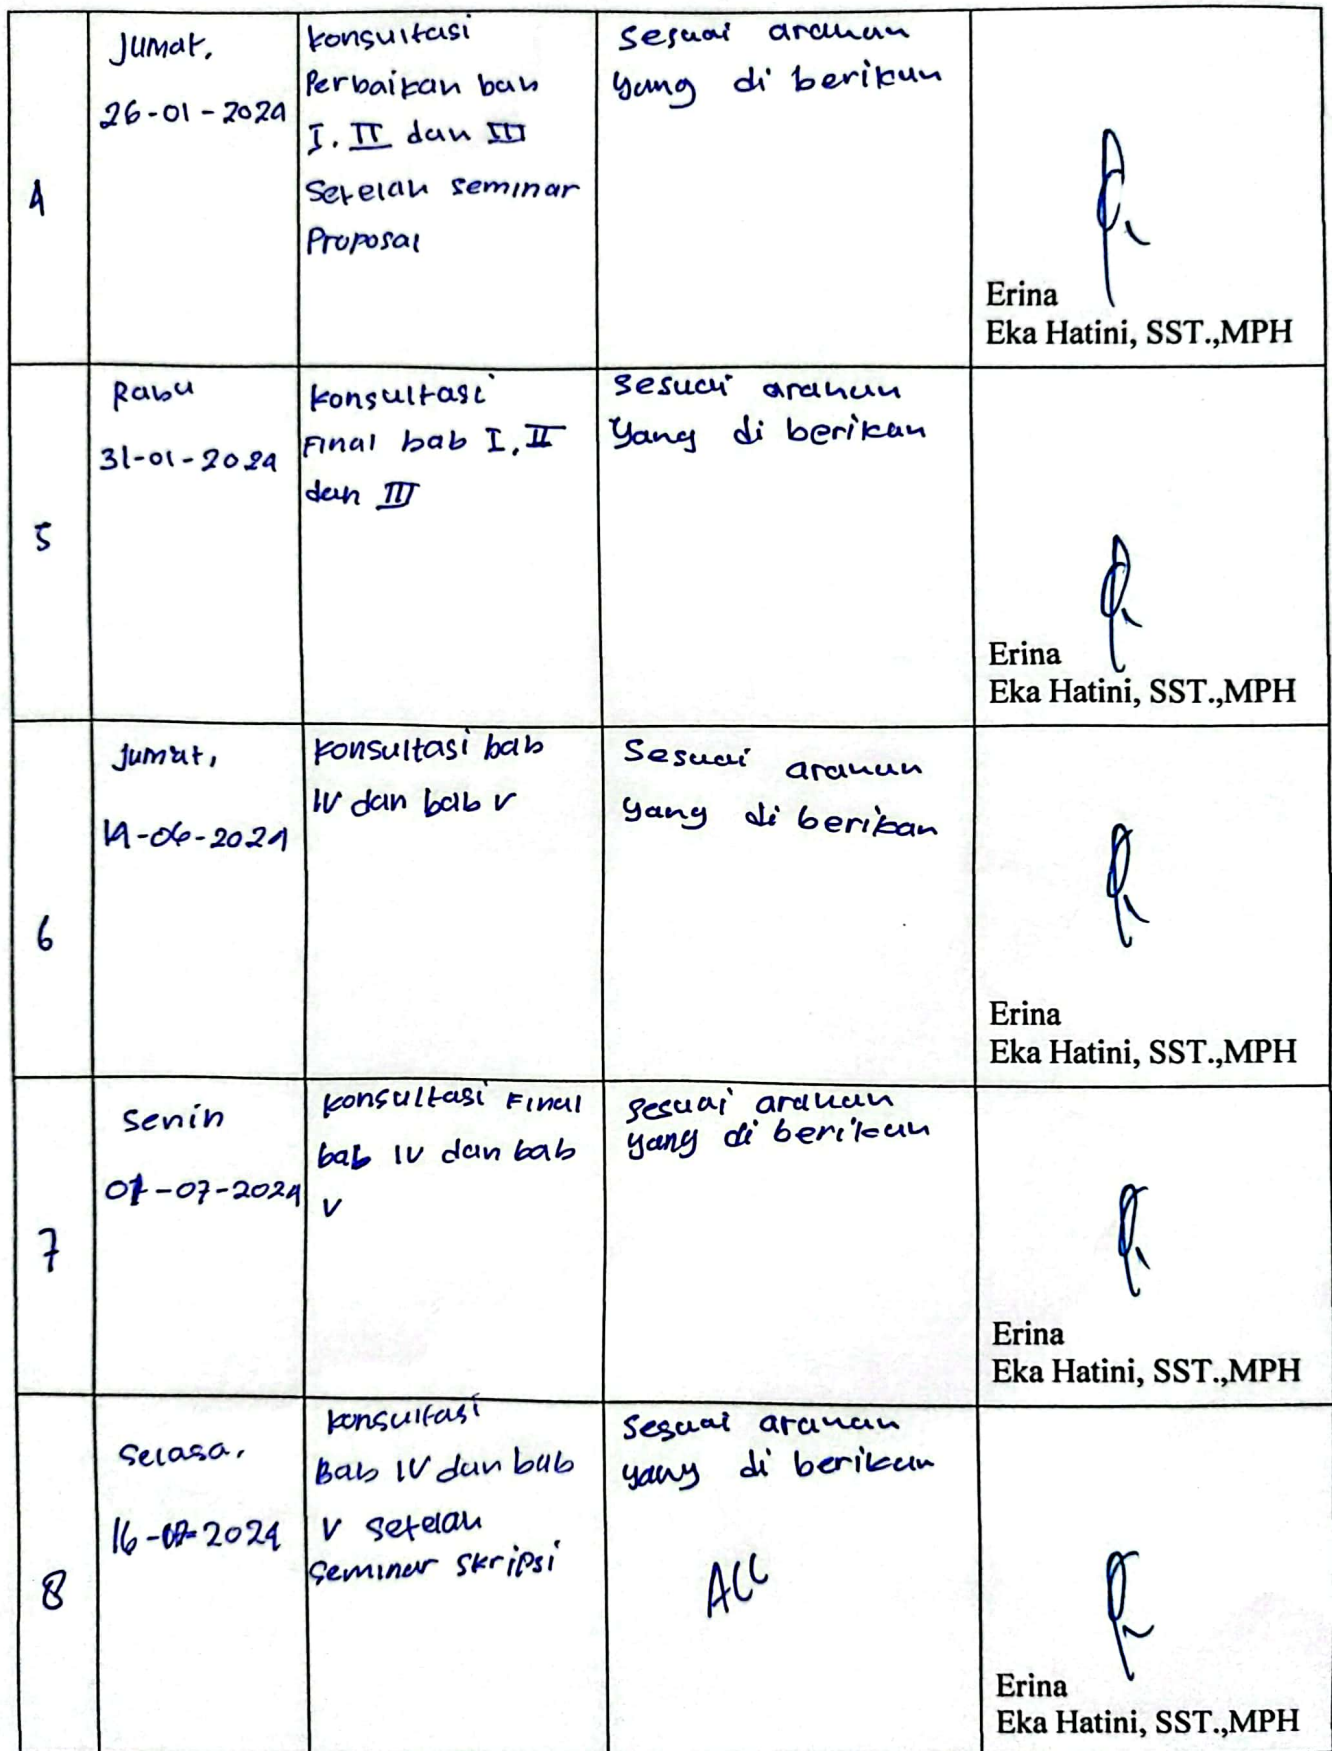 4
Jumat,
26-01-2024
konsultasi
Perbaikan bab
I, II dan III
Setelah seminar
Proposal
Sesuai arahan
yang di berikan
Erina
Eka Hatini, SST.,MPH
5
Rabu
31-01-2024
konsultasi
Final bab I, II
dan III
Sesuai arahan
Yang di berikan
Erina
Eka Hatini, SST.,MPH
6
Jumat,
14-06-2024
konsultasi bab
IV dan bab V
Sesuai arahan
yang di berikan
Erina
Eka Hatini, SST.,MPH
7
Senin
01-07-2024
konsultasi Final
bab IV dan bab
V
Sesuai arahan
yang di berikan
Erina
Eka Hatini, SST.,MPH
8
Selasa,
16-07-2024
konsultasi
Bab IV dan bab
V setelah
seminar skripsi
Sesuai arahan
yang di berikan
ACC
Erina
Eka Hatini, SST.,MPH